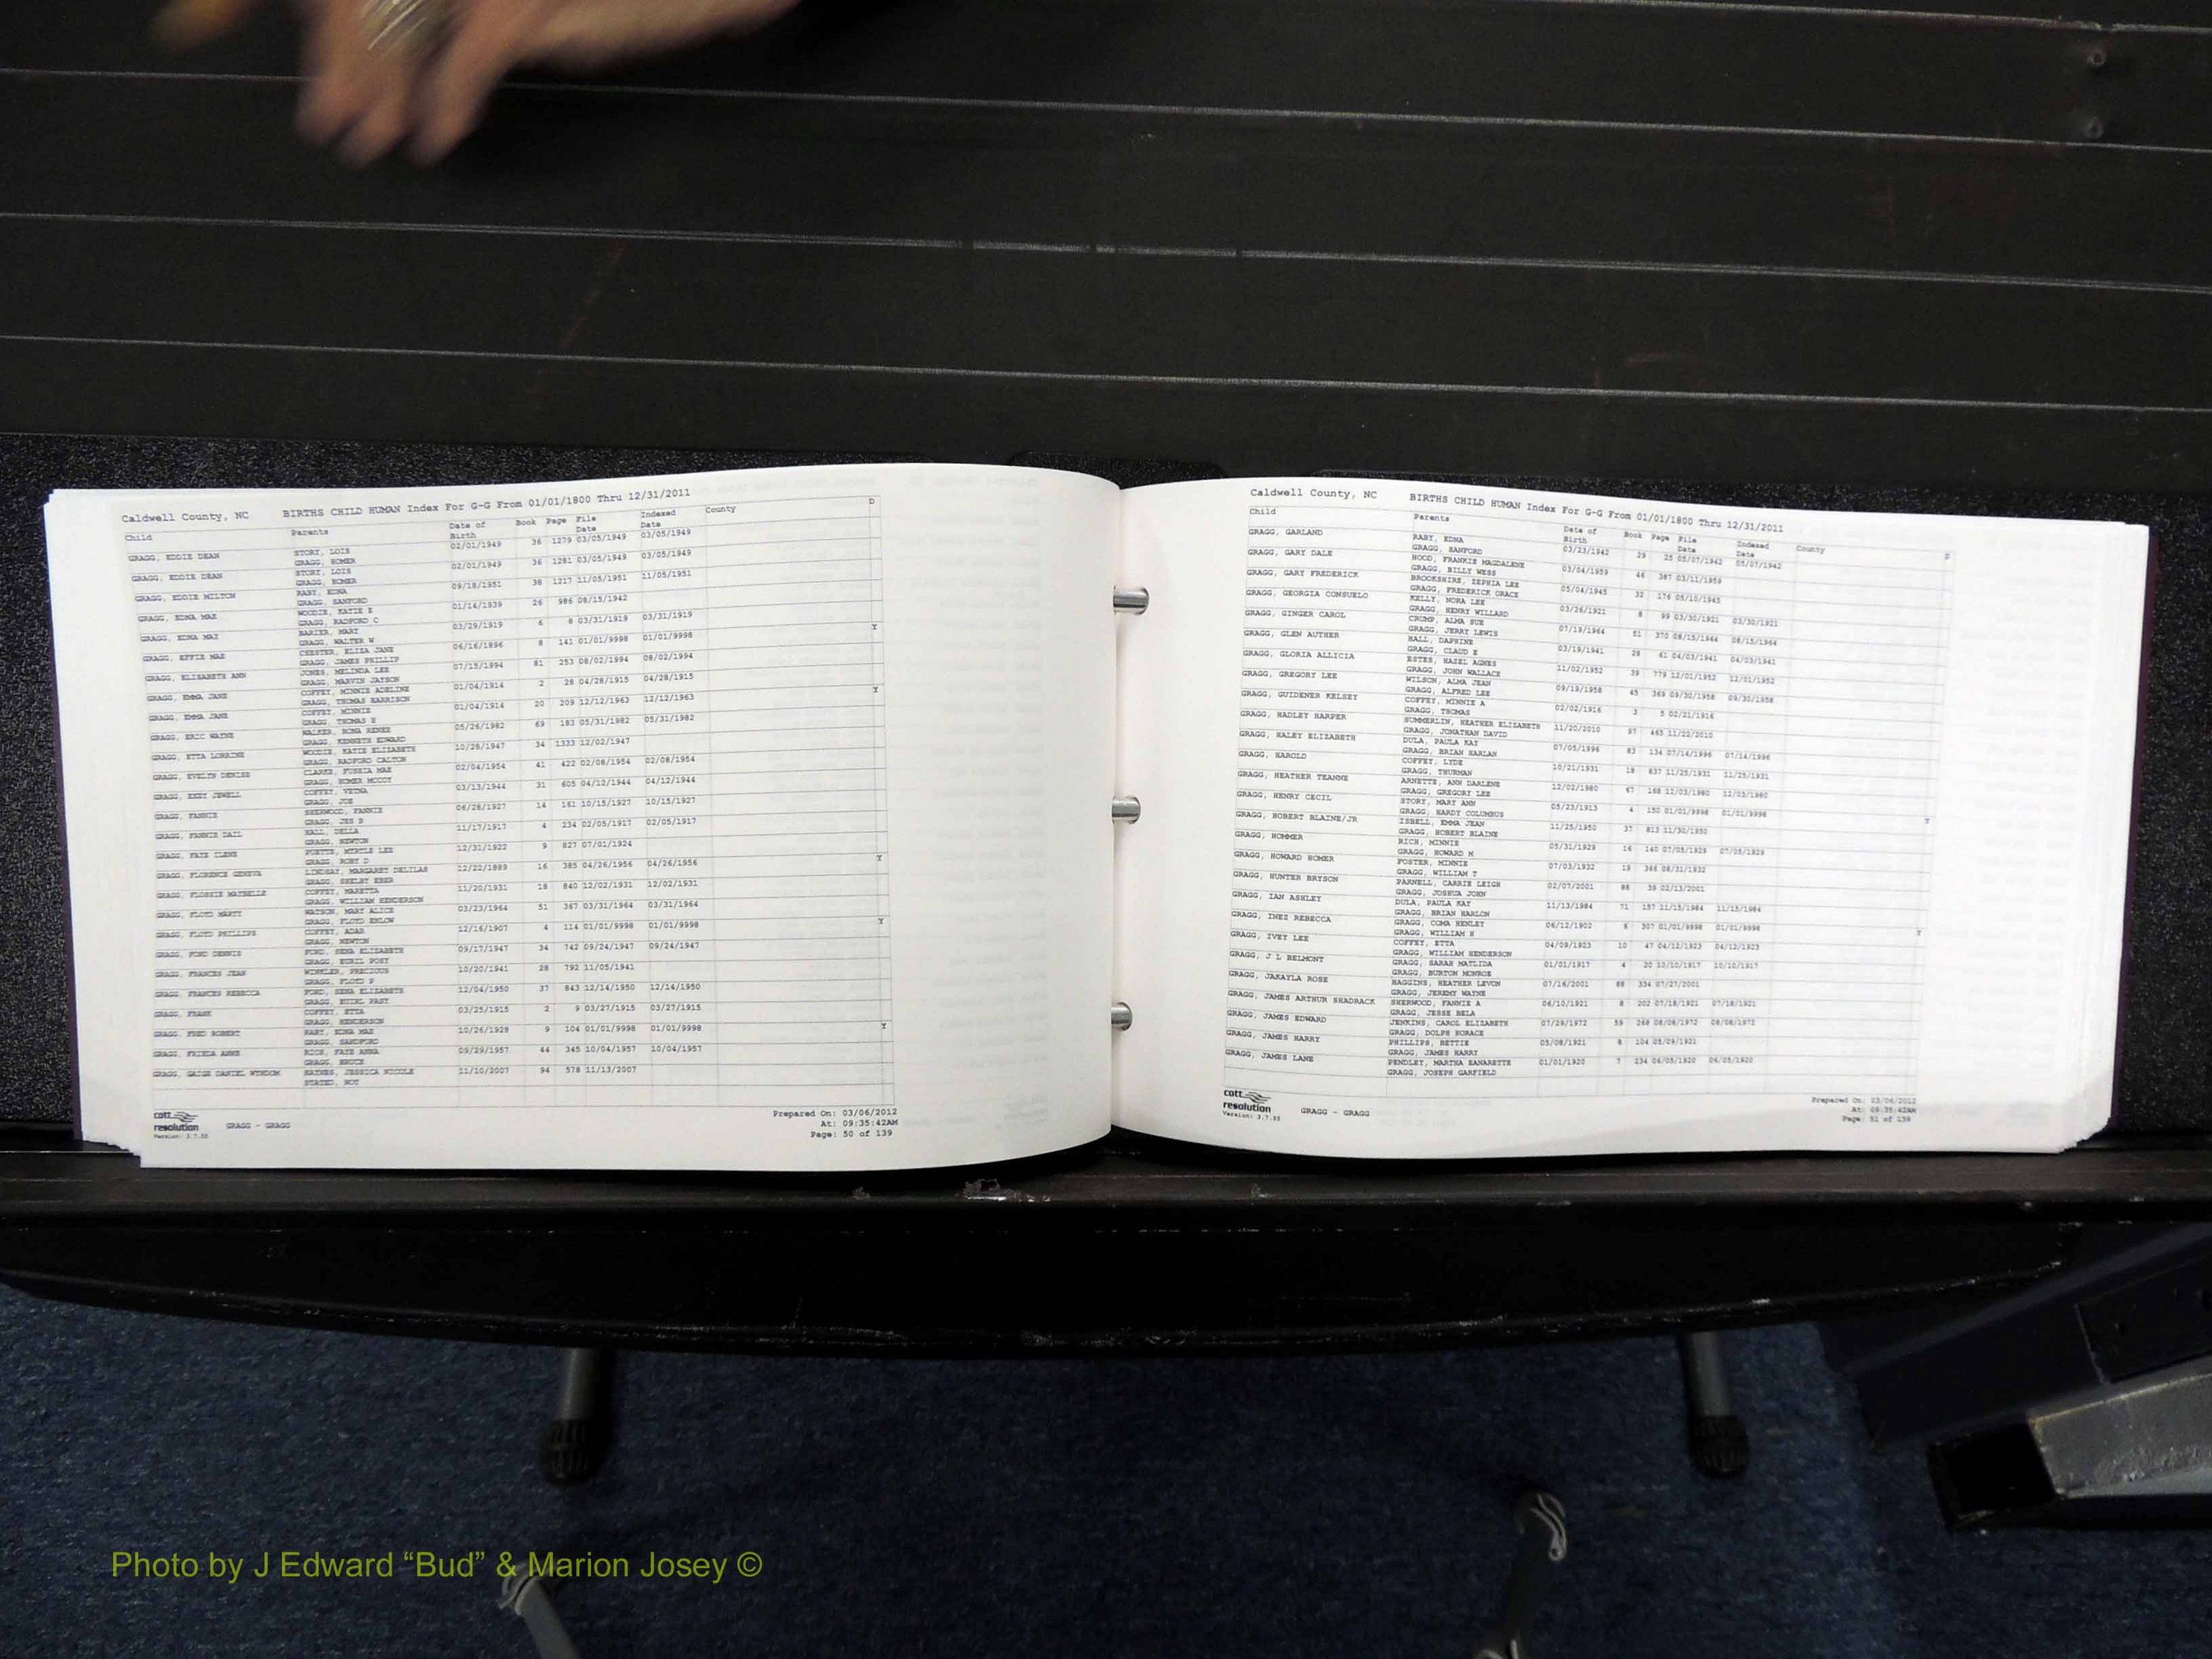 Caldwell County, NC BIRTHS CHILD HUMAN Index For G-G From 01/01/1800 Thru 12/31/2011
Child Parents Date of Birth Book Page File Date Indexed Date County D
GRAGG, EDDIE DEAN STORY, LOIS 02/01/1949 36 1279 03/05/1949 03/05/1949
GRAGG, HOMER
GRAGG, EDDIE DEAN STORY, LOIS 02/01/1949 36 1281 03/05/1949 03/05/1949
GRAGG, HOMER
GRAGG, EDDIE MILTON RABY, EDNA 09/18/1951 38 1217 11/05/1951 11/05/1951
GRAGG, SANFORD
GRAGG, EDNA MAE WOODIE, KATIE E 01/14/1939 26 986 08/15/1942
GRAGG, RADFORD C
GRAGG, EDNA MAY BARIER, MARY 03/29/1919 6 8 03/31/1919 03/31/1919
GRAGG, WALTER W
GRAGG, EFFIE MAE CHESTER, ELIZA JANE 06/16/1896 8 141 01/01/9998 01/01/9998 Y
GRAGG, JAMES PHILLIP
GRAGG, ELIZABETH ANN JONES, MELINDA LEE 07/15/1994 81 253 08/02/1994 08/02/1994
GRAGG, MARVIN JAYSON
GRAGG, EMMA JANE COFFEY, MINNIE ADELINE 01/04/1914 2 28 04/28/1915 04/28/1915
GRAGG, THOMAS HARRISON
GRAGG, EMMA JANE COFFEY, MINNIE 01/04/1914 20 209 12/12/1963 12/12/1963 Y
GRAGG, THOMAS H
GRAGG, ERIC WAYNE WALKER, RONA RENEE 05/26/1982 69 183 05/31/1982 05/31/1982
GRAGG, KENNETH EDWARD
GRAGG, ETTA LORRAINE WOODIE, KATIE ELIZABETH 10/28/1947 34 1333 12/02/1947
GRAGG, RADFORD CALTON
GRAGG, EVELYN DENISE CLARKE, FUSHIA MAE 02/04/1954 41 422 02/08/1954 02/08/1954
GRAGG, HOMER MCCOY
GRAGG, EXEY JEWELL COFFEY, VETNA 03/13/1944 31 605 04/12/1944 04/12/1944
GRAGG, JOE
GRAGG, FANNIE SHERWOOD, FANNIE 06/28/1927 14 161 10/15/1927 10/15/1927
GRAGG, JES B
GRAGG, FANNIE DAIL HALL, DELLA 11/17/1917 4 234 02/05/1917 02/05/1917
GRAGG, NEWTON
GRAGG, FAYE ILENE PUETTE, MYRTLE LEE 12/31/1922 9 827 07/01/1924
GRAGG, ROBY D
GRAGG, FLORENCE GENEVA LINDSAY, MARGARET DELILAH 12/22/1889 16 385 04/26/1956 04/26/1956 Y
GRAGG, SHELBY EBER
GRAGG, FLOSSIE MAYBELLE COFFEY, MARETTA 11/20/1931 18 840 12/02/1931 12/02/1931
GRAGG, WILLIAM HENDERSON
GRAGG, FLOYD MARTY WATSON, MARY ALICE 03/23/1964 51 367 03/31/1964 03/31/1964
GRAGG, FLOYD ENLOW
GRAGG, FLOYD PHILLIPS COFFEY, ADAR 12/16/1907 4 114 01/01/9998 01/01/9998 Y
GRAGG, NEWTON
GRAGG, FORD DENNIS FORD, SENA ELIZABETH 09/17/1947 34 742 09/24/1947 09/24/1947
GRAGG, EURIL POST
GRAGG, FRANCES JEAN WINKLER, PRECIOUS 10/20/1941 28 792 11/05/1941
GRAGG, FLOYD P
GRAGG, FRANCES REBECCA FORD, SENA ELIZABETH 12/04/1950 37 843 12/14/1950 12/14/1950
GRAGG, PAST
GRAGG, FRANK COFFEY, ETTA 03/25/1915 2 9 03/27/1915 03/27/1915
GRAGG, HENDERSON
GRAGG, FRED ROBERT RABY, EDNA MAE 10/26/1928 9 104 01/01/9998 01/01/9998 Y
GRAGG, SANDFORD
GRAGG, FRIEDA ANNE RICH, FAYE ANNA 09/29/1957 44 345 10/04/1957 10/04/1957
GRAGG, BRUCE
GRAGG, GAIGE DANIEL WYNDOM HAYNES, JESSICA NICOLE 11/10/2007 94 578 11/13/2007
STATED, NOT
cott resolution Version: 3.7.55 GRAGG - GRAGG
Prepared On: 03/06/2012
At: 09:35:42AM
Page: 50 of 139
Caldwell County, NC BIRTHS CHILD HUMAN Index For G-G From 01/01/1800 Thru 12/31/2011
Child Parents Date of Birth Book Page File Date Indexed Date County D
GRAGG, GARLAND RABY, EDNA 03/23/1942 29 25 05/07/1942 05/07/1942
GRAGG, SANFORD
GRAGG, GARY DALE HOOD, FRANKIE MAGDALENE 03/04/1959 46 387 03/11/1959
GRAGG, BILLY WESS
GRAGG, GARY FREDERICK BROOKSHIRE, ZEPHIA LEE 05/04/1945 32 176 05/10/1945
GRAGG, FREDERICK GRACE
GRAGG, GEORGIA CONSUELO KELLY, NORA LEE 03/26/1921 8 99 03/30/1921 03/30/1921
GRAGG, HENRY WILLARD
GRAGG, GINGER CAROL CRUMP, ALMA SUE 07/19/1964 51 370 08/15/1964 08/15/1964
GRAGG, JERRY LEWIS
GRAGG, GLEN AUTHER HALL, DAPHINE 03/19/1941 28 61 04/03/1941 04/03/1941
GRAGG, CLAUD E
GRAGG, GLORIA ALLICIA ESTES, HAZEL AGNES 11/02/1952 39 779 12/01/1952 12/01/1952
GRAGG, JOHN WALLACE
GRAGG, GREGORY LEE WILSON, ALMA JEAN 09/19/1958 45 369 09/30/1958 09/30/1958
GRAGG, ALFRED LEE
GRAGG, GUIDENER KELSEY COFFEY, MINNIE A 02/02/1916 3 5 02/21/1916
GRAGG, THOMAS
GRAGG, HADLEY HARPER SUMMERLIN, HEATHER ELIZABETH 11/20/2010 97 465 11/22/2010
GRAGG, JONATHAN DAVID
GRAGG, HALEY ELIZABETH DULA, PAULA KAY 07/05/1996 83 134 07/14/1996 07/14/1996
GRAGG, BRIAN HARLAN
GRAGG, HAROLD COFFEY, LYDE 10/21/1931 18 837 11/25/1931 11/25/1931
GRAGG, THURMAN
GRAGG, HEATHER TEANNE ARNETTE, ANN DARLENE 12/02/1980 67 168 12/03/1980 12/03/1980
GRAGG, GREGORY LEE
GRAGG, HENRY CECIL STORY, MARY ANN 05/23/1913 4 150 01/01/9998 01/01/9998 Y
GRAGG, HARDY COLUMBUS
GRAGG, HOBERT BLAINE/JR ISBELL, EMMA JEAN 11/25/1950 37 813 11/30/1950
GRAGG, HOBERT BLAINE
GRAGG, HOMMER RICH, MINNIE 05/31/1929 16 140 07/05/1929 07/05/1929
GRAGG, HOWARD M
GRAGG, HOWARD HOMER FOSTER, MINNIE 07/03/1932 19 366 08/31/1932
GRAGG, WILLIAM T
GRAGG, HUNTER BRYSON PARNELL, CARRIE LEIGH 02/07/2001 88 39 02/13/2001
GRAGG, JOSHUA JOHN
GRAGG, IAN ASHLEY DULA, PAULA KAY 11/13/1984 71 157 11/15/1984 11/15/1984
GRAGG, BRIAN HARLON
GRAGG, INEZ REBECCA GRAGG, COMA HENLEY 06/12/1902 6 307 01/01/9998 01/01/9998 Y
GRAGG, WILLIAM H
GRAGG, IVEY LEE COFFEY, ETTA 04/09/1923 10 47 04/12/1923 04/12/1923
GRAGG, WILLIAM HENDERSON
GRAGG, J L BELMONT GRAGG, SARAH MATLIDA 01/01/1917 4 20 10/10/1917 10/10/1917
GRAGG, BURTON MONROE
GRAGG, JAKAYLA ROSE HAGGINS, HEATHER LEVON 07/16/2001 88 334 07/27/2001
GRAGG, JEREMY WAYNE
GRAGG, JAMES ARTHUR SHADRACK SHERWOOD, FANNIE A 06/10/1921 8 202 07/18/1921 07/18/1921
GRAGG, JESSE BELA
GRAGG, JAMES EDWARD JENKINS, CAROL ELIZABETH 07/29/1972 59 268 08/08/1972 08/08/1972
GRAGG, DOLPH HORACE
GRAGG, JAMES HARRY PHILLIPS, BETTIE 05/08/1921 8 104 05/09/1921
GRAGG, JAMES HARRY
GRAGG, JAMES LANE PENDLEY, MARTHA EANARETTE 01/01/1920 7 234 06/05/1920 06/05/1920
GRAGG, JOSEPH GARFIELD
cott resolution Version: 3.7.55 GRAGG - GRAGG
Prepared On: 03/06/2012
At: 09:35:42AM
Page: 51 of 139
Photo by J Edward “Bud” & Marion Josey ©